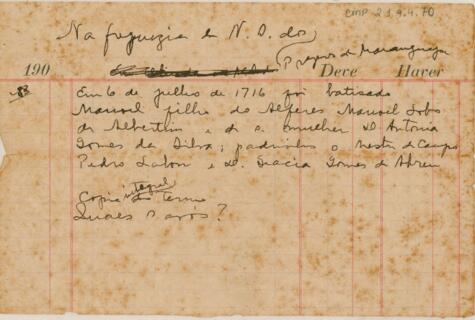 CMP 2.1.9.4.70
Na freguezia de N. S. dos
Prazeres de Maranguape
190 Deve Haver
Em 6 de julho de 1716 foi batisado
Manoel filho do Alferes Manoel Lobo
de Albertim e de s. mulher D. Antonia
Gomes da Silva; padrinhos o Mestre de Campo
Pedro e D. Gracia Gomes de Abreu
Copia integral do termo
Quaes os avós?